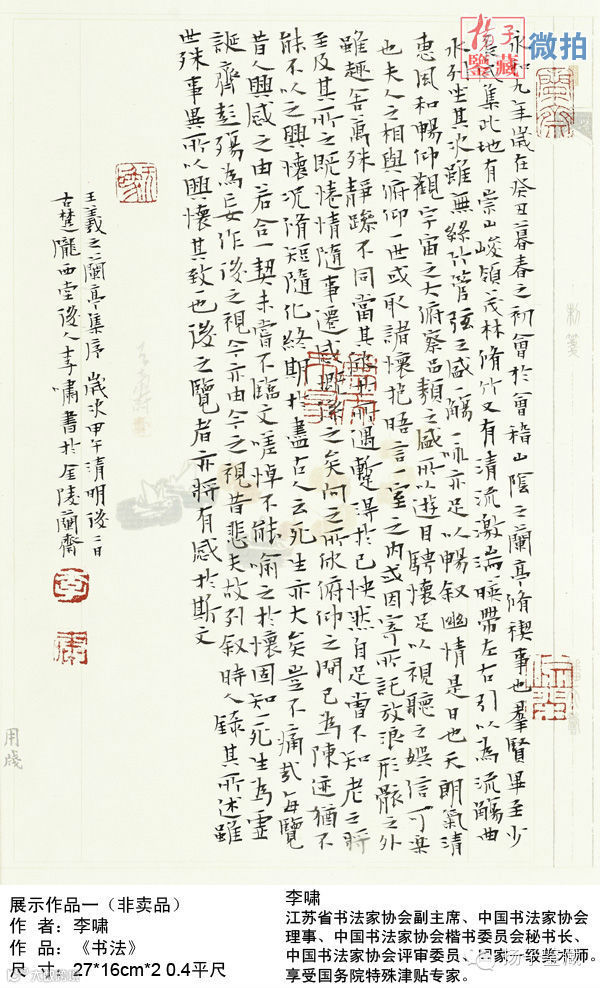 楊子
鑒藏
微拍
永和九年歲在癸丑暮春之初會於會稽山陰之蘭亭脩稧事也羣賢畢至少
咸集此地有崇山峻領茂林脩竹又有清流激湍暎帶左右引以為流觴曲
水列坐其次雖無絲竹管弦之盛一觴一詠亦足以暢敘幽情是日也天朗氣清
惠風和暢仰觀宇宙之大俯察品類之盛所以遊目騁懷足以視聽之娛信可樂
也夫人之相與俯仰一世或取諸懷抱晤言一室之內或因寄所託放浪形骸之外
雖趣舍萬殊靜躁不同當其欣於所遇暫得於己快然自足曾不知老之將
至及其所之既惓情隨事遷感慨係之矣向之所欣俯仰之間已為陳迹猶不
能不以之興懷況脩短隨化終期於盡古人云死生亦大矣豈不痛哉每覽
昔人興感之由若合一契未嘗不臨文嗟悼不能喻之於懷固知一死生為虛
誕齊彭殤為妄作後之視今亦由今之視昔悲夫故列敘時人錄其所述雖
世殊事異所以興懷其致也後之覽者亦將有感於斯文
王羲之蘭亭集序歲次甲午清明後二日
古楚隴西堂後人李嘯書於金陵蘭齋
用箋
展示作品一（非卖品）
作 者：李啸
作 品：《书法》
尺 寸：27*16cm*2 0.4平尺
李啸
江苏省书法家协会副主席、中国书法家协会
理事、中国书法家协会楷书委员会秘书长、
中国书法家协会评审委员、国家一级美术师。
享受国务院特殊津贴专家。